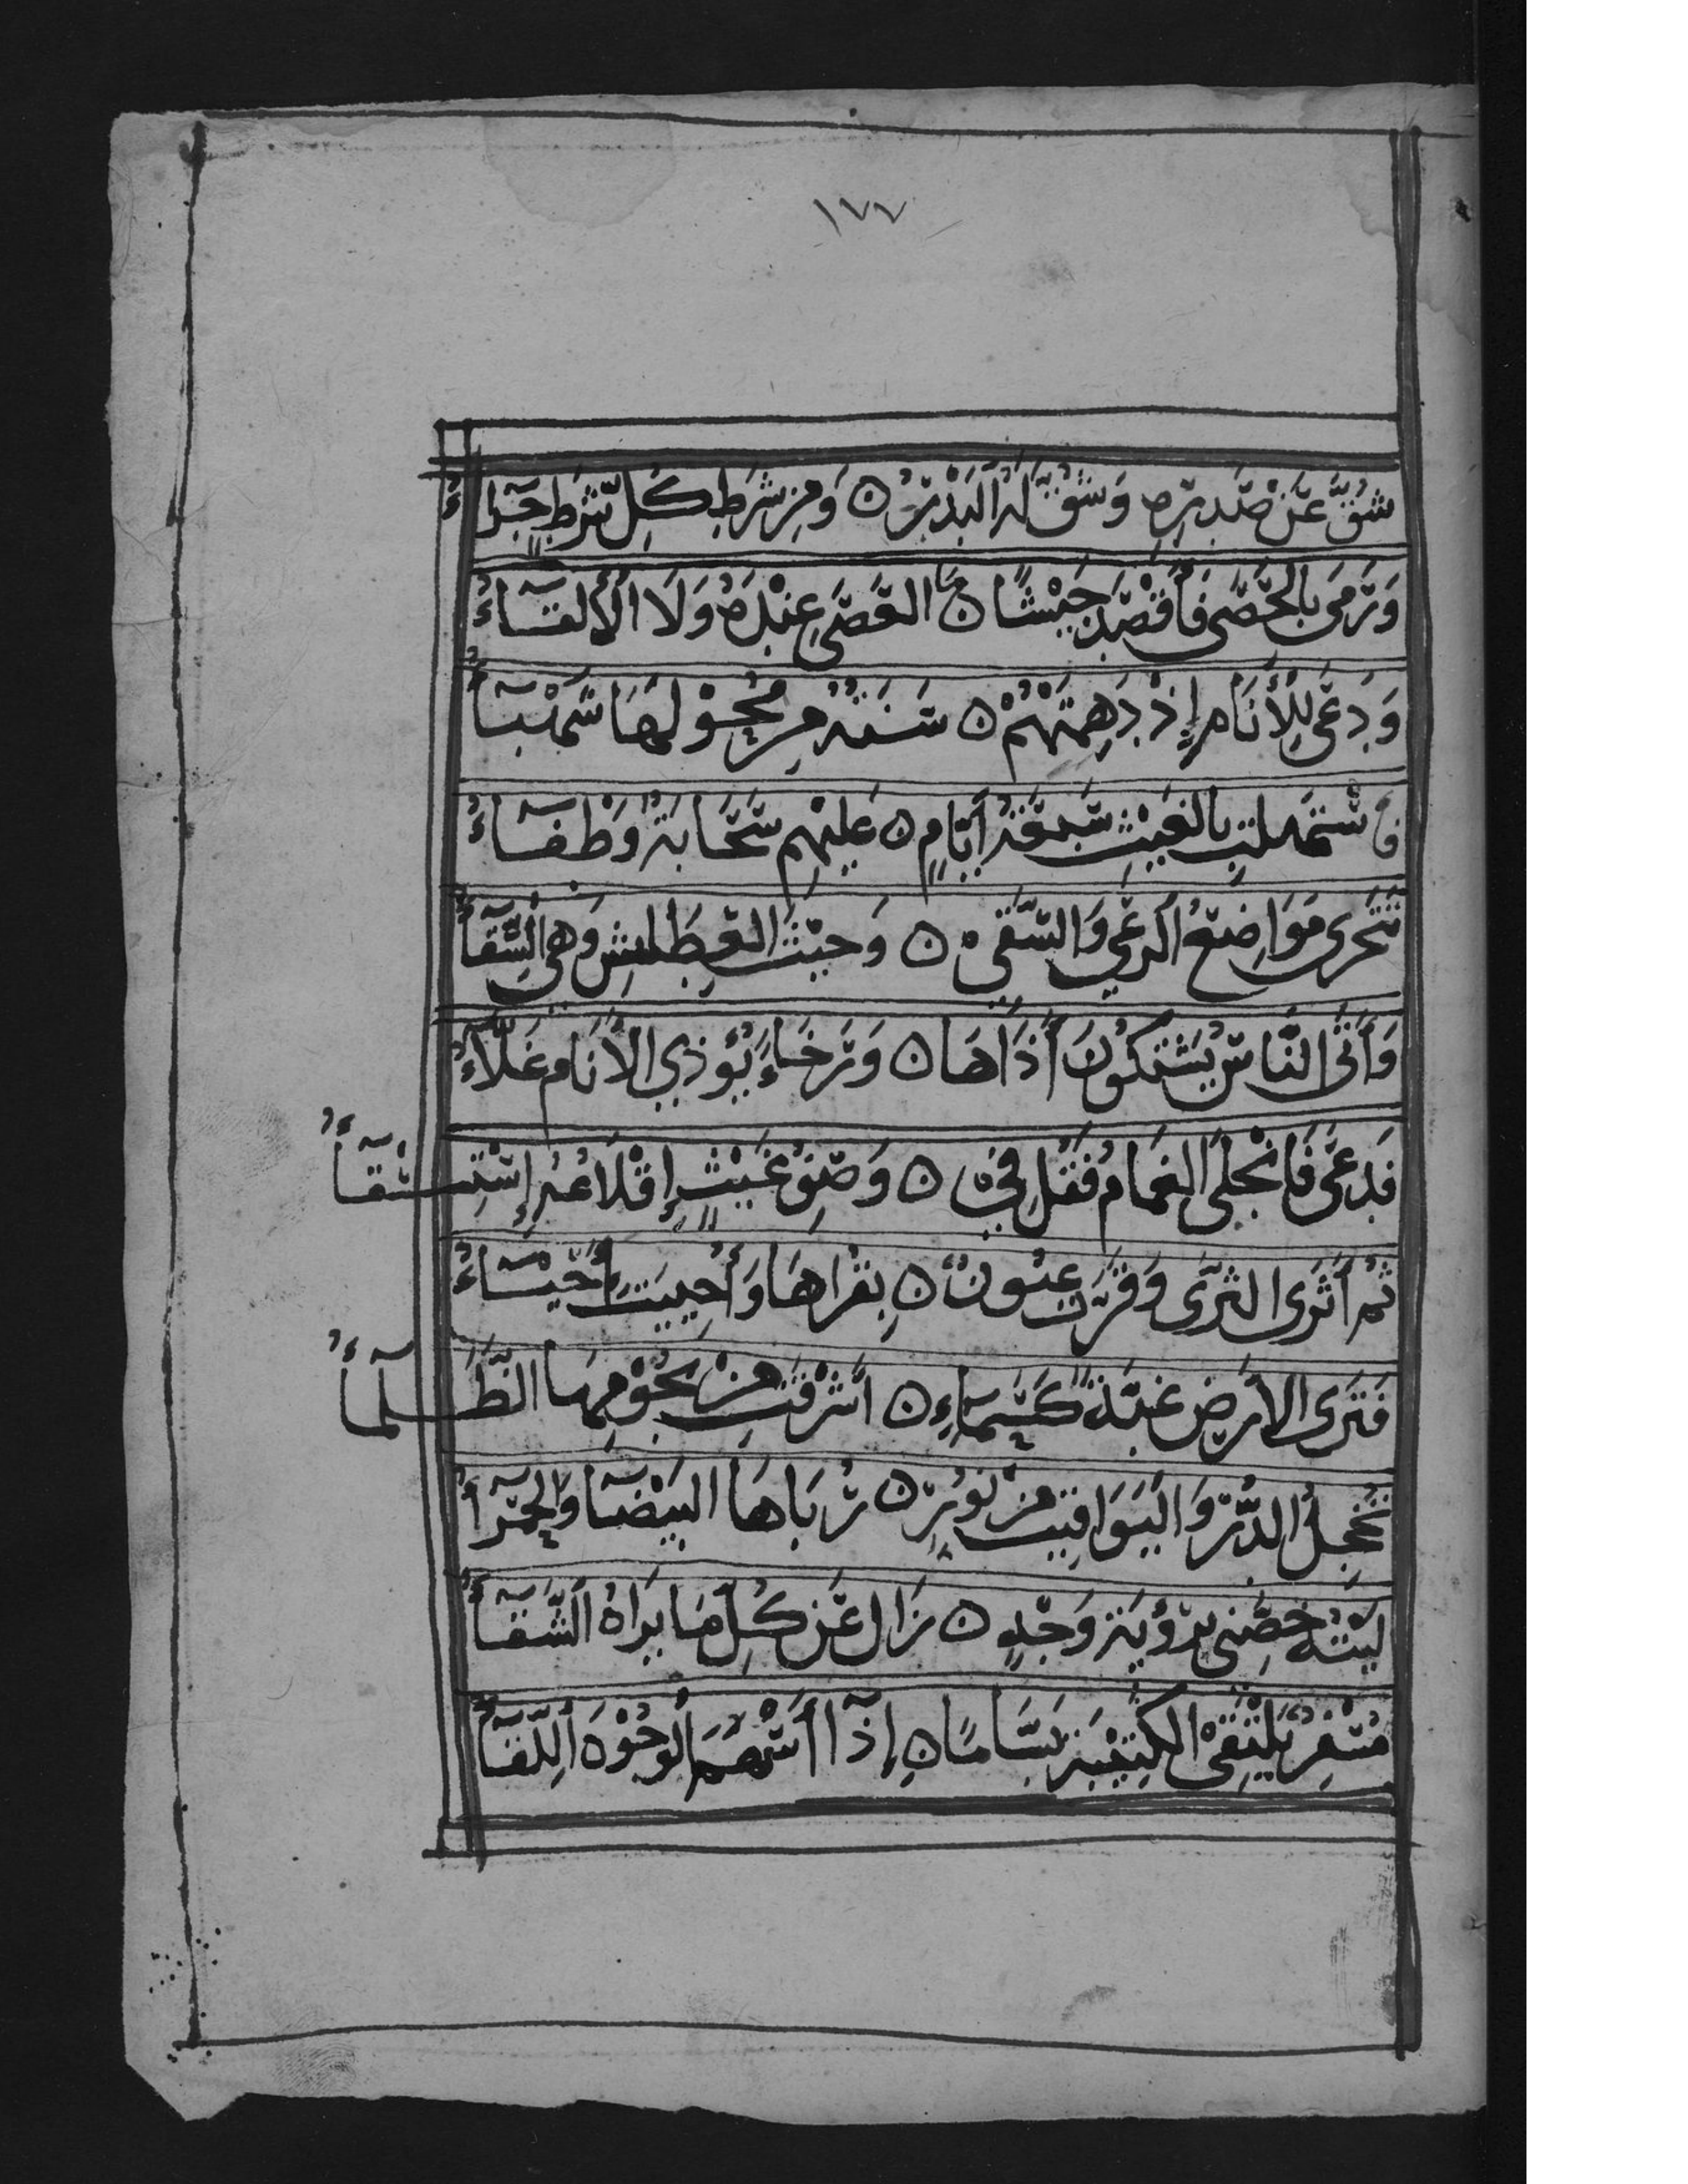 ١٧٧
شُقَّ عَنْ صَدرِهِ وَشُقَّ لَهُ البَدْرُ ۝ وَمِن شَرطِ كُلِّ شَرطٍ جَزَاءُ
وَرَمَى بِالحَصَى فَأَقْصَدَ جَيْشًا ۝ مَا العَصَى عِنْدَهُ وَلَا الأَلقَاءُ
وَدَعَى لِلأَنَامِ إِذْ دَهِمَتْهُمْ ۝ سَنَةٌ مِن مُحُوْلِهَا شَهْبَاءُ
فَاسْتَهَلَّتْ بِالغَيْثِ سَبعَةَ أَيَّامٍ ۝ عَلَيْهِم سَحَابَةٌ وَطْفَاءُ
تَتَحَرَى مَوَاضِعَ الرَعِي وَالسَّقِي ۝ وَحَيْثُ العِطَاشِ وَهِيَ السِّقَاءُ
وَأَتَى النَّاسُ يَشْتَكُونَ أَذَاهَا ۝ وَرَخَاءٍ يُؤْذِي الأَنَامَ غَلَاءُ
فَدَعَى فَانْجَلَى الغَمَامُ فَقُل فِي ۝ وَصْفِ غَيْثٍ إِقْلَاعُهُ إِسْتِسْقَاءُ
ثُمَّ أَثْرَى الثَّرَى وَقَرَّتْ عُيُونٌ ۝ بِقُرَاهَا وَأُحْيِيَتْ أَحْيَاءُ
فَتَرَى الأَرْضَ عِنْدَهُ كَسَمَاءٍ ۝ أَشْرَقَتْ مِنْ نُجُوْمِهَا الظَّلْمَاءُ
تُخْجِلُ الدُّرَّ وَاليَوَاقِيتَ مِنْ نَوْرٍ ۝ رُبَاهَا البَيْضَاءُ وَالحَمْرَاءُ
لَيْتَهُ خَصَّنِي بِرُؤْيَةِ وَجْهٍ ۝ زَالَ عَنْ كُلِّ مَا يَرَاهُ الشَّقَاءُ
مُسْفِرٌ يَلْتَقِيْ الكَتِيْبَةَ بَسَّامًا ۝ إِذَا أَسْهَمَ الوُجُوْهَ اللِّقَاءُ